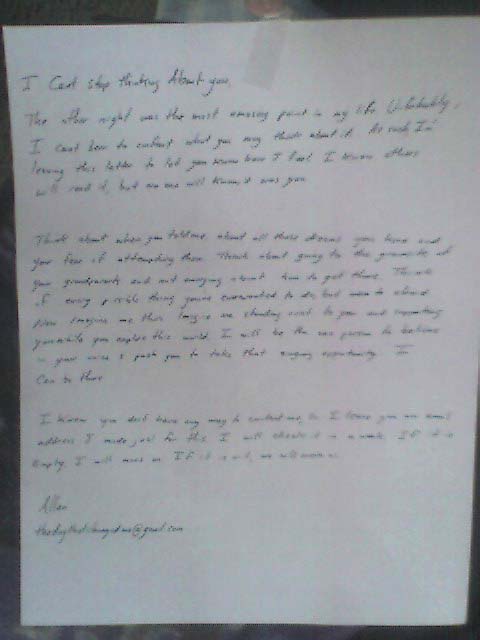 I Cant stop thinking About you.
The other night was the most amazing point in my life Unfortunately,
I cant how to contact what you may think about it. As such I'm
leaving this letter to let you know how I feel I know others
will read it, but no one will know it was you
Think about when you told me about all those dreams you have and
your fear of attempting them Think about going to the
your grandparents and not worrying about how to get there. Think
of every possible thing you've ever wanted to do, but were to afraid
Now imagine me there Imagine me standing next to you and supporting
you while you explore this world. I will be the one person to believe
in your & push you to take that opportunity. I
Can be there
I know you don't have any way to contact me, so I leave you an email
address I made just for this I will check it in a week. If it is
Empty, I will move on If it is not, we will move on
Allen
thedaythatchangedme@gmail.com